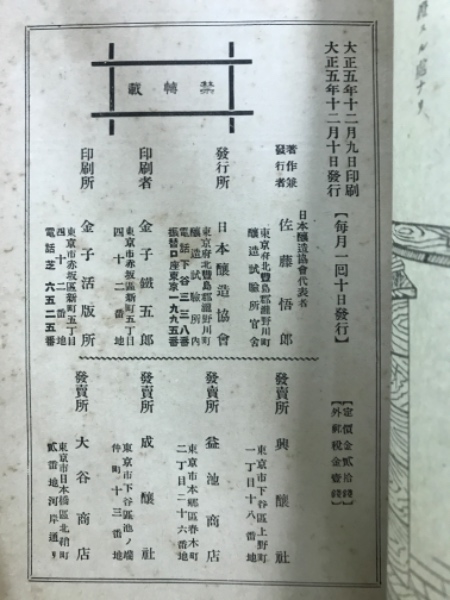 大正五年十二月九日印刷
大正五年十二月十日發行
【每月一回十日發行】
【定價金貳拾錢】
【外郵稅金壹錢】
禁轉載
著作兼
發行者
日本釀造協會代表者
佐藤悟郎
東京府北豐島郡瀧野川町
釀造試驗所官舍
發行所
日本釀造協會
東京府北豐島郡瀧野川町
釀造試驗所內
電話下谷三三八番
振替口座東京一九九五番
印刷者
金子鐵五郎
東京市赤坂區新町五丁目
四十二番地
印刷所
金子活版所
東京市赤坂區新町五丁目
四十二番地
電話芝六五二五番
發賣所
興釀社
東京市下谷區上野町
一丁目十八番地
發賣所
益池商店
東京市本鄉區春木町
二丁目二十六番地
發賣所
成釀社
東京市下谷區池ノ端
仲町十三番地
發賣所
大谷商店
東京市日本橋區北鞘町
貳番地河岸通り